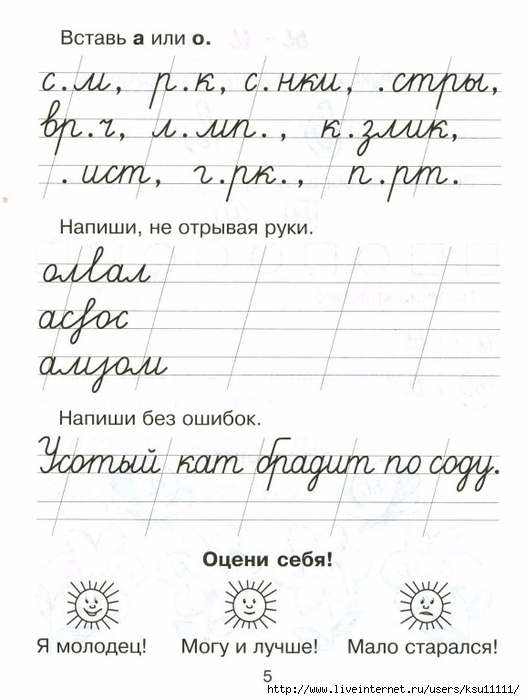 Вставь а или о.
с.м, р.к, с.нки, .стры,
вр.ч, л.мп., к.злик,
.ист, г.рк., п.рт.
Напиши, не отрывая руки.
олвал
асвос
амзом
Напиши без ошибок.
Усотый кат брадит по соду.
Оцени себя!
Я молодец! Могу и лучше! Мало старался!
5
http://www.liveinternet.ru/users/ksu11111/